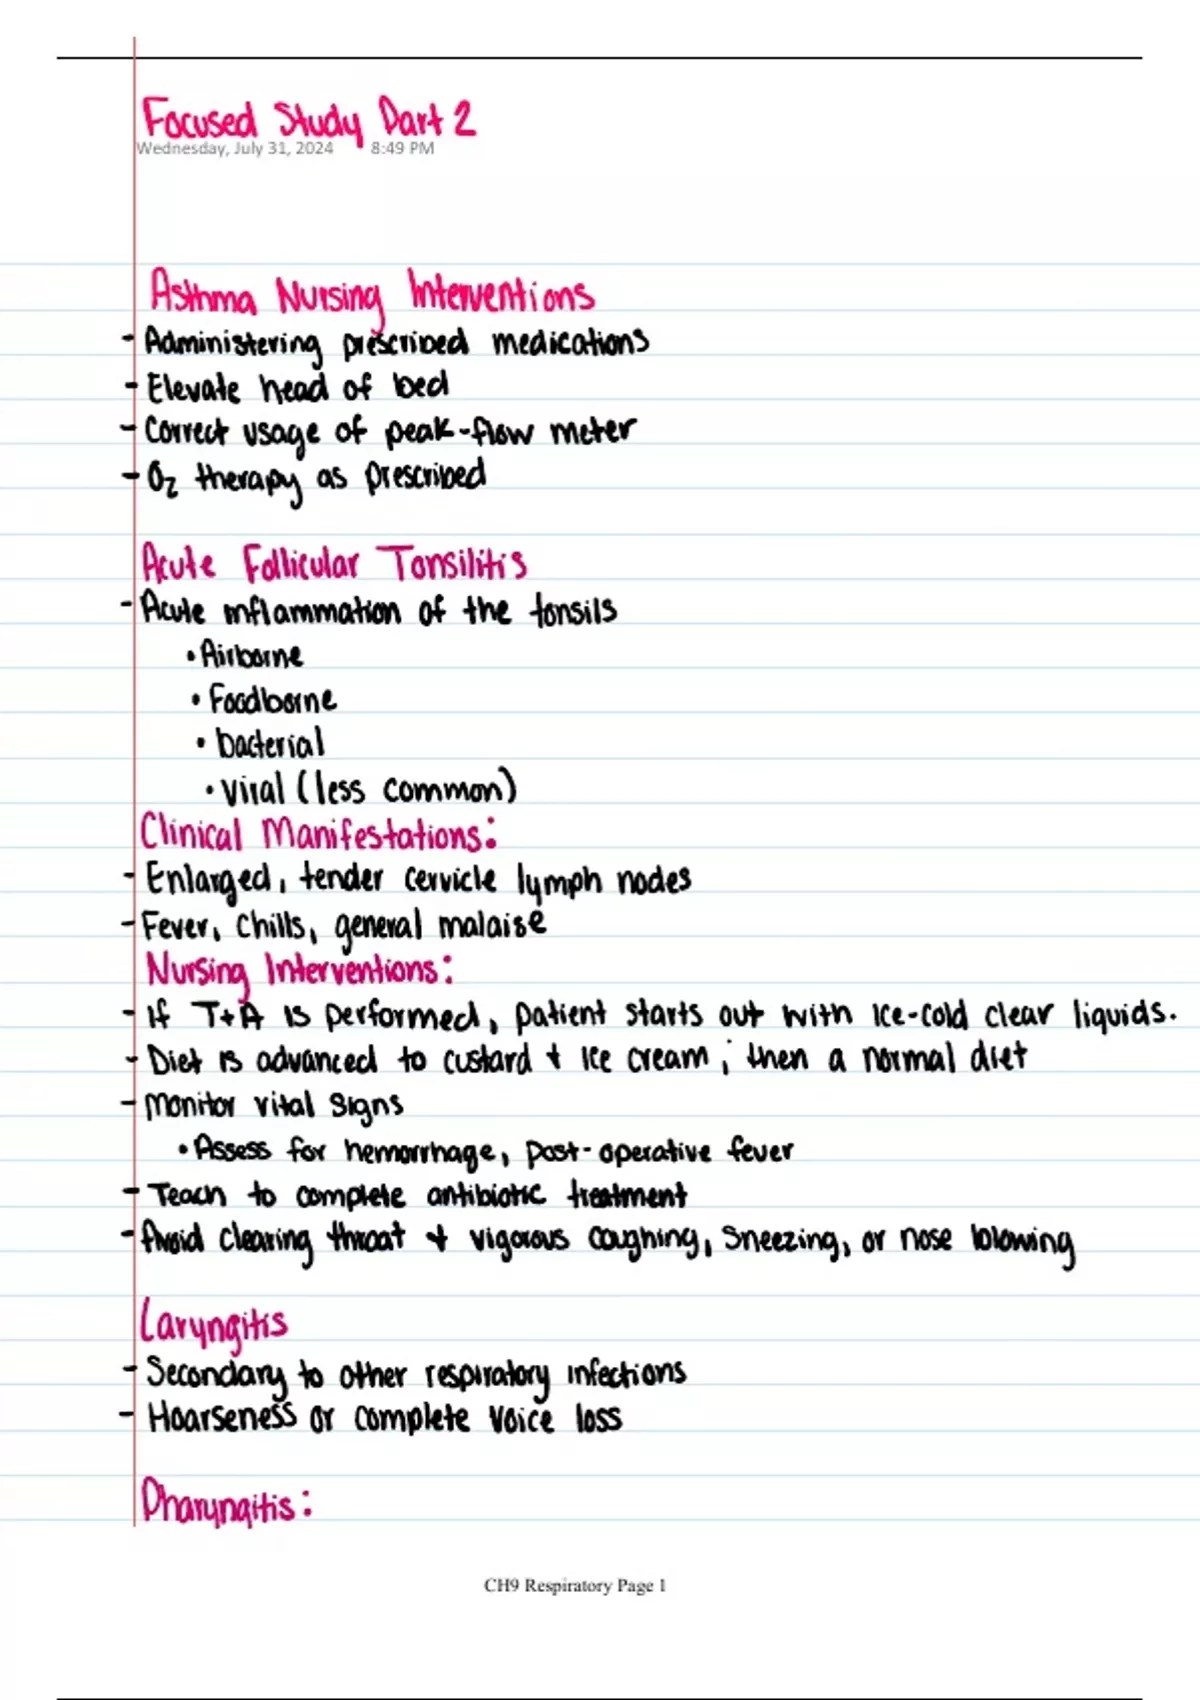 Focused Study Part 2
Wednesday, July 31, 2024 8:49 PM
Asthma Nursing Interventions
- Administering prescribed medications
- Elevate head of bed
- Correct usage of peak-flow meter
- O2 therapy as prescribed
Acute Follicular Tonsilitis
- Acute inflammation of the tonsils
• Airborne
• Foodborne
• bacterial
• Viral (less common)
Clinical Manifestations:
- Enlarged, tender cervicle lymph nodes
- Fever, chills, general malaise
Nursing Interventions:
- If T+A is performed, patient starts out with ice-cold clear liquids.
- Diet is advanced to custard + ice cream; then a normal diet
- Monitor vital signs
• Assess for hemorrhage, post-operative fever
- Teach to complete antibiotic treatment
- Avoid clearing throat + vigorous coughing, sneezing, or nose blowing
Laryngitis
- Secondary to other respiratory infections
- Hoarseness or complete voice loss
Pharyngitis:
CH9 Respiratory Page 1